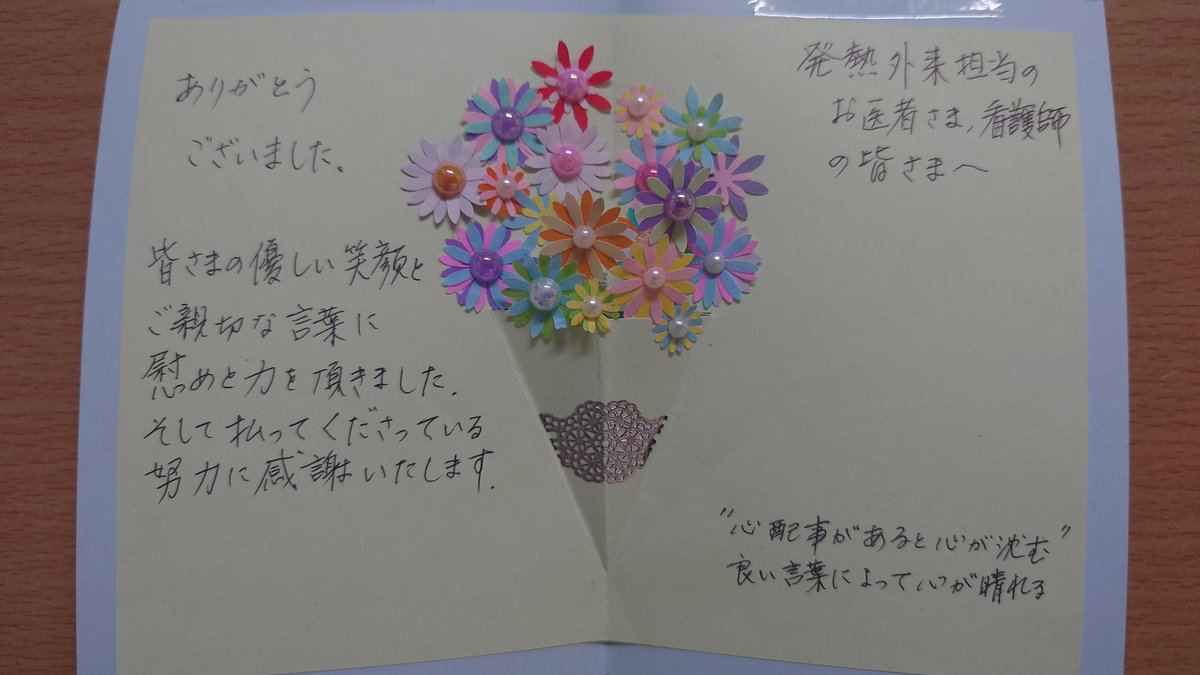 発熱外来担当の
お医者さま,看護師
の皆さまへ
ありがとう
ございました。
皆さまの優しい笑顔と
ご親切な言葉に
慰めと力を頂きました.
そして払ってくださっている
努力に感謝いたします.
"心配事があると心が沈む"
良い言葉によって心が晴れる